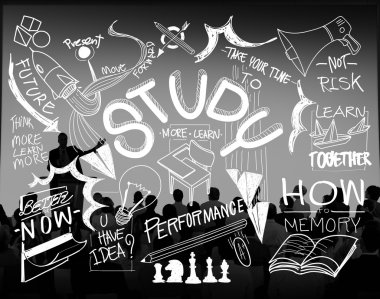 Present
Move
FORWARD
FUTURE
TAKE YOUR TIME
TO
NOT
RISK
STUDY
MORE LEARN
THINK
MORE
LEARN
MORE
LEARN
TOGETHER
Better
NOW
U
HAVE
IDEA?
PERFORMANCE
HOW
TO
MEMORY